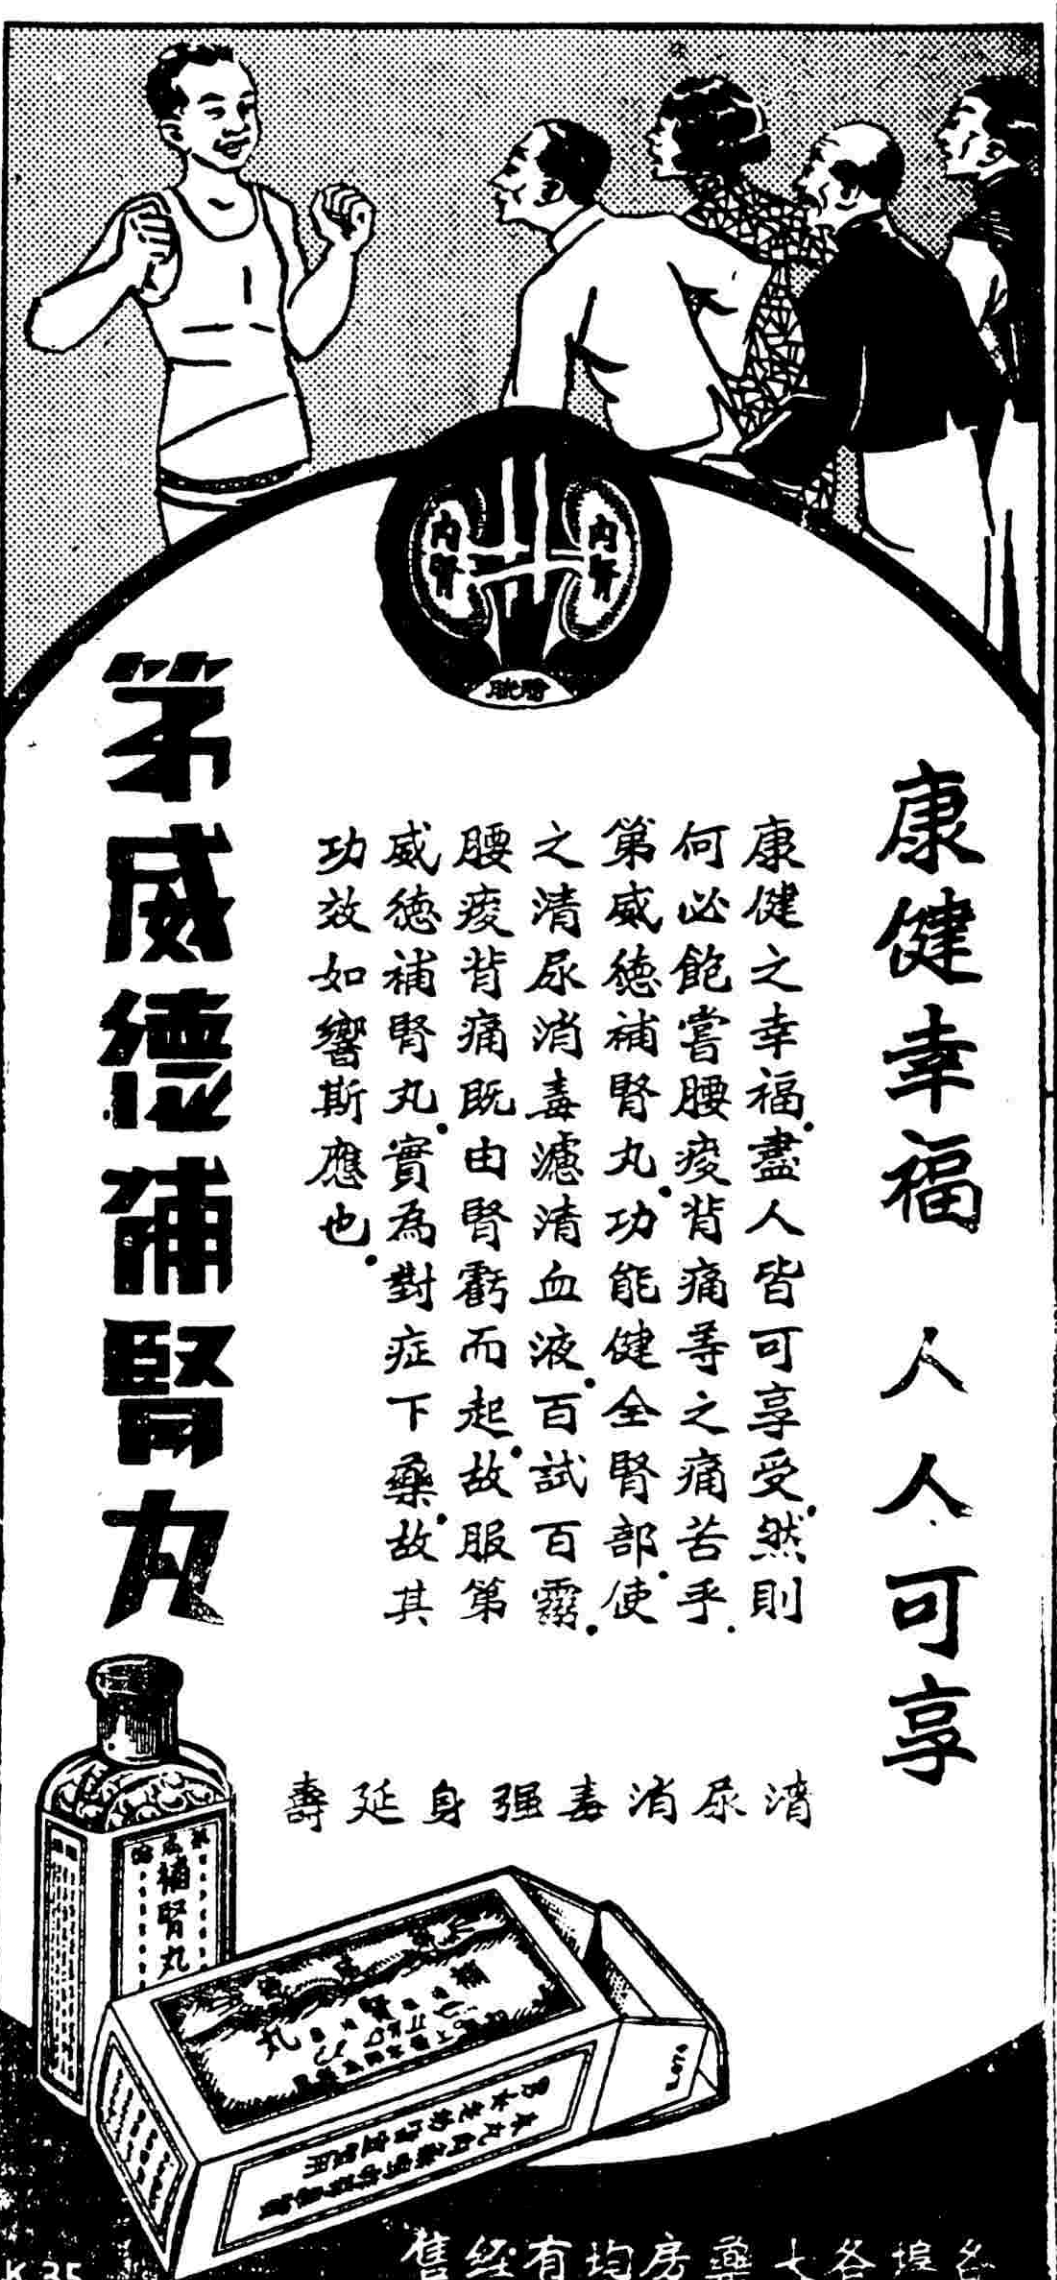 內腎
內腎
膀胱
康健幸福 人人可享
康健之幸福．盡人皆可享受．然則
何必飽嘗腰痠背痛等之痛苦乎．
第威德補腎丸．功能健全腎部．使
之清尿消毒濾清血液．百試百靈．
腰痠背痛既由腎虧而起．故服第
威德補腎丸．實為對症下藥．故其
功效如響斯應也．
第威德補腎丸
清尿消毒强身延壽
補腎丸
各埠各大藥房均有經售
K 35